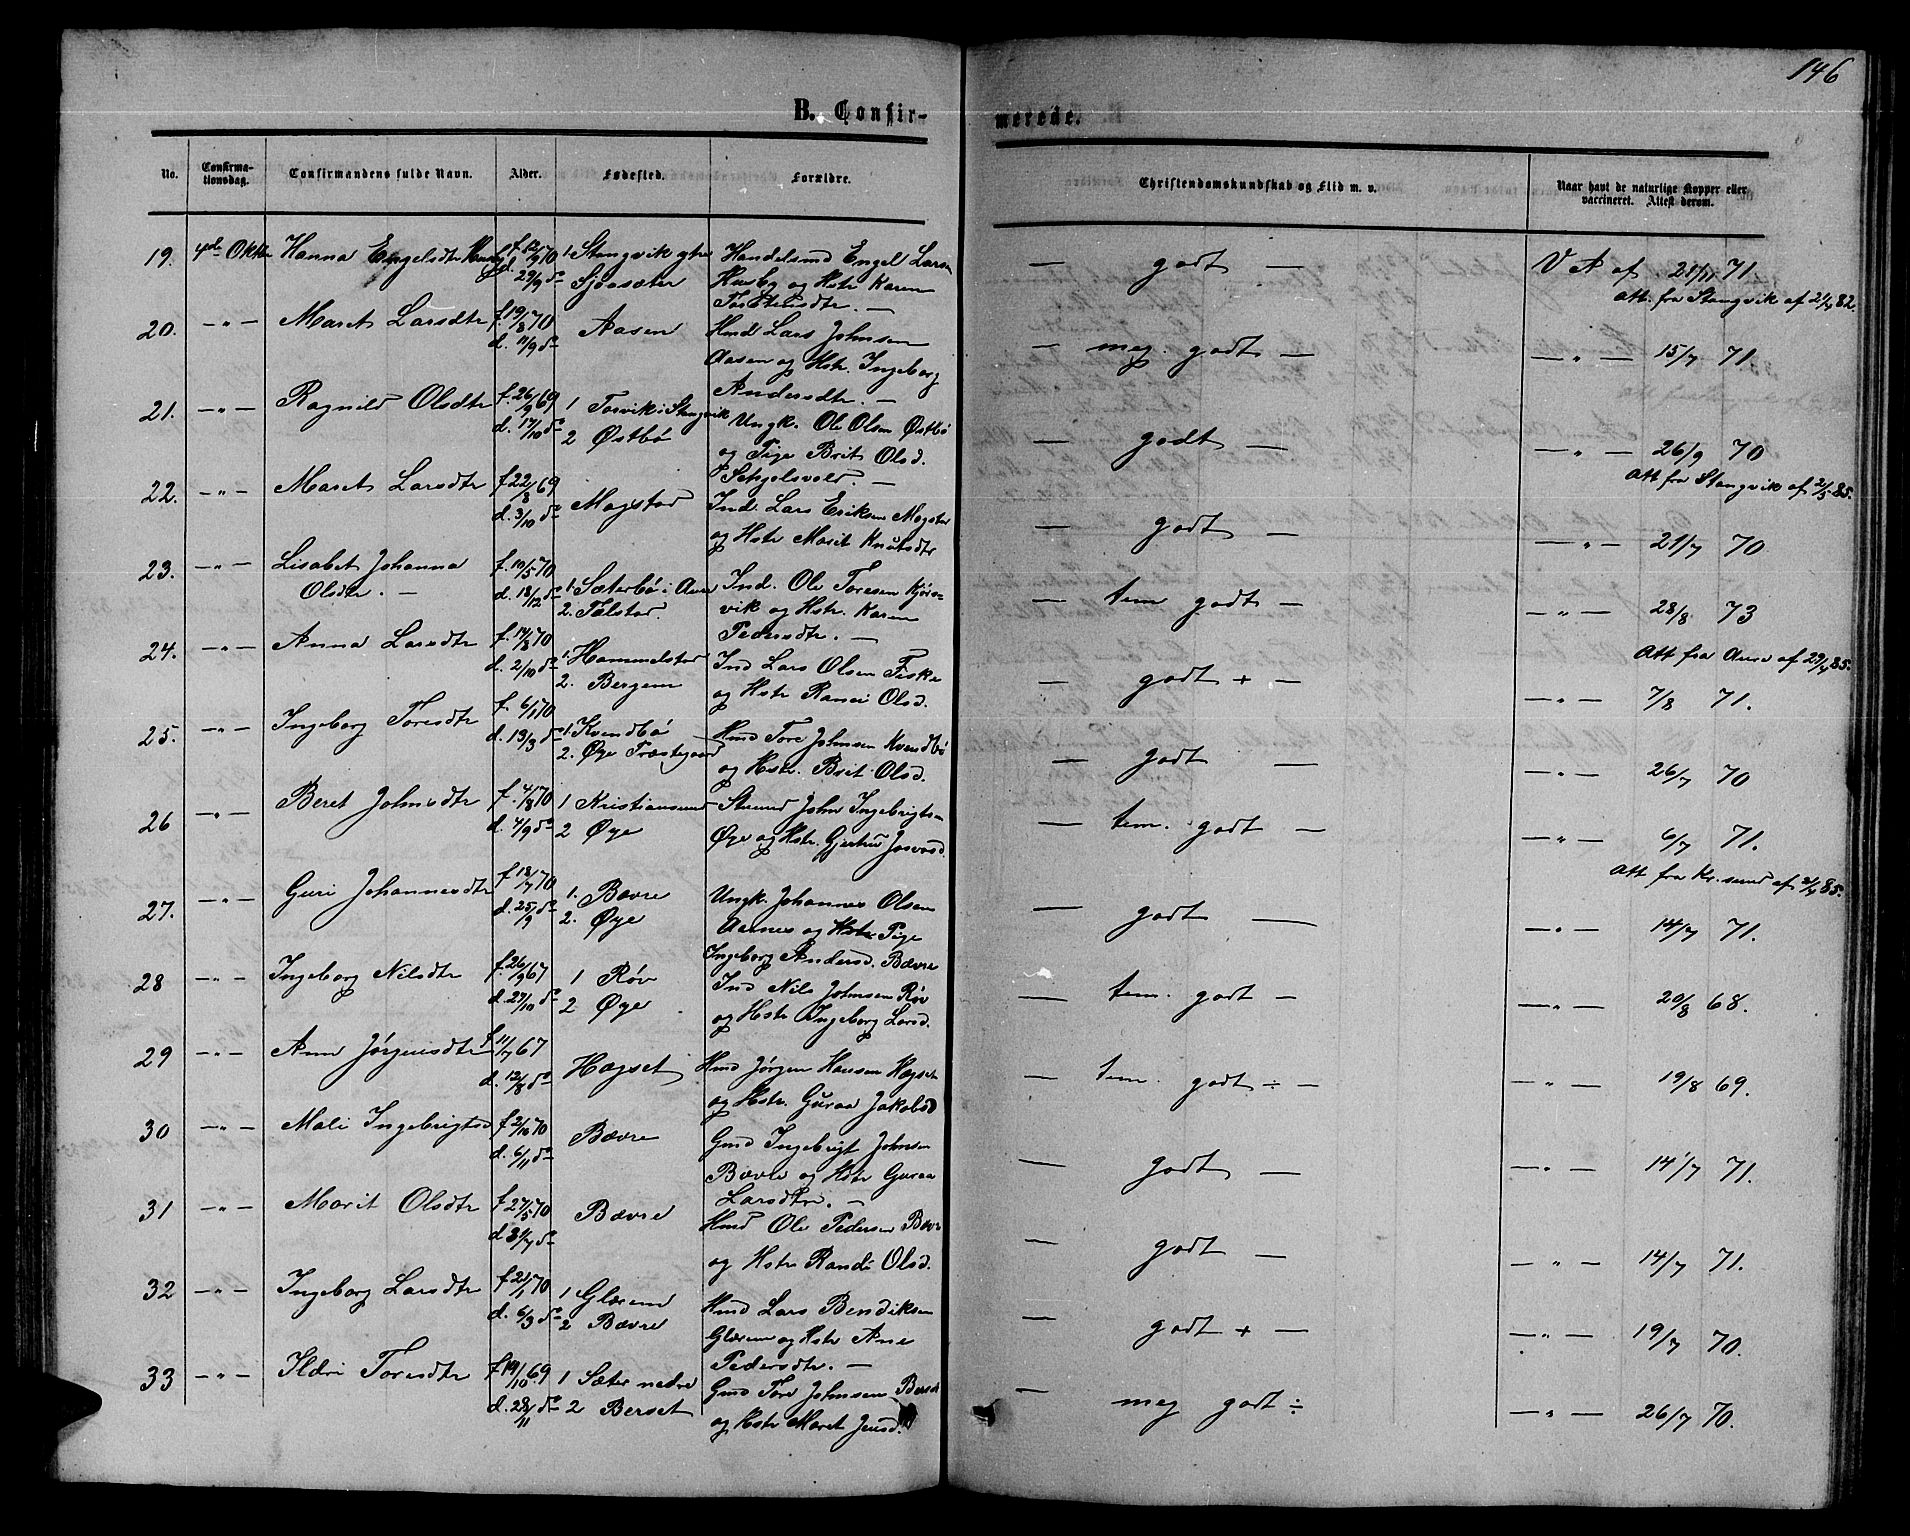 146
B. Confir-
merede.
No.
Confirma-
tionsdag.
Confirmandens fulde Navn.
Alder.
Fødested.
Forældre.
Christendomskundskab og Flid m. v.
Naar havt de naturlige Kopper eller
vaccineret. Attest derom.
19. 4de Oktbr Hanna Engelsdtr Husby f. 12/9 70 1 Stangvik gtre Handelsmd Engel Larsen — godt — V A af 28/11 71.
d. 29/9 do Sjøasæter Husby og Hstr Karen
Torstensdtr. — Att. fra Stangvik af 21/4 82.
20. —"— Maret Larsdtr f. 19/8 70 Aasen Hmd Lars Johnsen — meg. godt — —"— 15/7 71.
d. 11/9 do Aasen og Hstr. Ingeborg
Andersdtr. —
21. —"— Ragnild Olsdtr f. 26/9 69 1 Torvik i Stangvik Ungk. Ole Olsen Østbø — godt — —"— 26/9 70
d. 17/10 do 2 Østbø og Pige Brit Olsd.
Att fra Stangvik af 2/5 85.
22. —"— Maret Larsdtr f 22/8 69 Mogstad Ind. Lars Eriksen Mogstad — godt — —"— 21/7 70
d. 3/10 do og Hstr Marit Knutsdtr
23. —"— Lisabet Johanna f. 10/5 70 1. Sæterbø i Aure Ind. Ole Toresen — tem godt — —"— 28/8 73
Olsdtr. — d. 18/12 do 2. Tølstad. vik og Hstr. Karen
Pedersdtr. — Att fra Aure af 29/4 85.
24. —"— Anna Larsdtr f. 14/8 70 1. Hammelstad Ind Lars Olsen Fiske — godt + — —"— 7/8 71.
d. 2/10 do 2. Bergem og Hstr Ranei Olsd.
25. —"— Ingeborg Toresdtr f. 6/1 70 1. Kvendbø Hmd Tore Johnsen Kvendbø — godt — —"— 26/7 70
d. 13/3 do 2. Øye Præstegaard og Hstr. Brit Olsd.
26 —"— Beret Johnsdtr f. 4/8 70 1 Kristiansund John Ingebrigtsn — tem. godt — —"— 6/7 71.
d. 4/9 do 2 Øye Øye og Hstr. Gjertrud
Att fra Kr.sund af 2/4 85.
27. —"— Guri Johannesdtr f 18/7 70 1. Bævre Ungk. Johannes Olsen — godt — —"— 14/7 71.
d. 25/9 do 2. Øye Aarnes og Pige
Ingeborg Andersd. Bævre
28 —"— Ingeborg Nilsdtr f. 26/9 67 1 Røv Ind Nils Johnsen Røv — tem. godt — —"— 20/8 68.
d. 27/10 do 2 Øye og Hstr Ingeborg Larsd.
29 —"— Ane Jørgensdtr f 11/7 67 Hægset Hmd Jørgen Hansen Hægset — tem. godt ÷ — —"— 19/8 69.
d. 12/8 do og Hstr. Guraa Jakobsd
30 —"— Mali Ingebrigtsd f 2/10 70 Bævre Gmd Ingebrigt Johnsen — godt — —"— 14/7 71.
d. 6/11 do Bævre og Hstr Guraa
Larsdtr. —
31 —"— Marit Olsdtr f 27/5 70 Bævre Hmd Ole Pedersen Bævre — godt — —"— 14/7 71.
d 3/7 do og Hstr Randi Olsd.
32 —"— Ingeborg Larsdtr f 21/1 70 1 Glærem Hmd Lars Bendiksen — godt + — —"— 19/7 70.
d. 6/3 do 2 Bævre Glærem og Hstr Ane
Pedersdtr. —
33 —"— Ildri Toresdtr f 19/10 69. 1 Sæter nedre Gmd Tore Johnsen Berset — meg godt ÷ —"— 26/7 70.
d. 28/11 do 2 Berset og Hstr Maret Jensd.